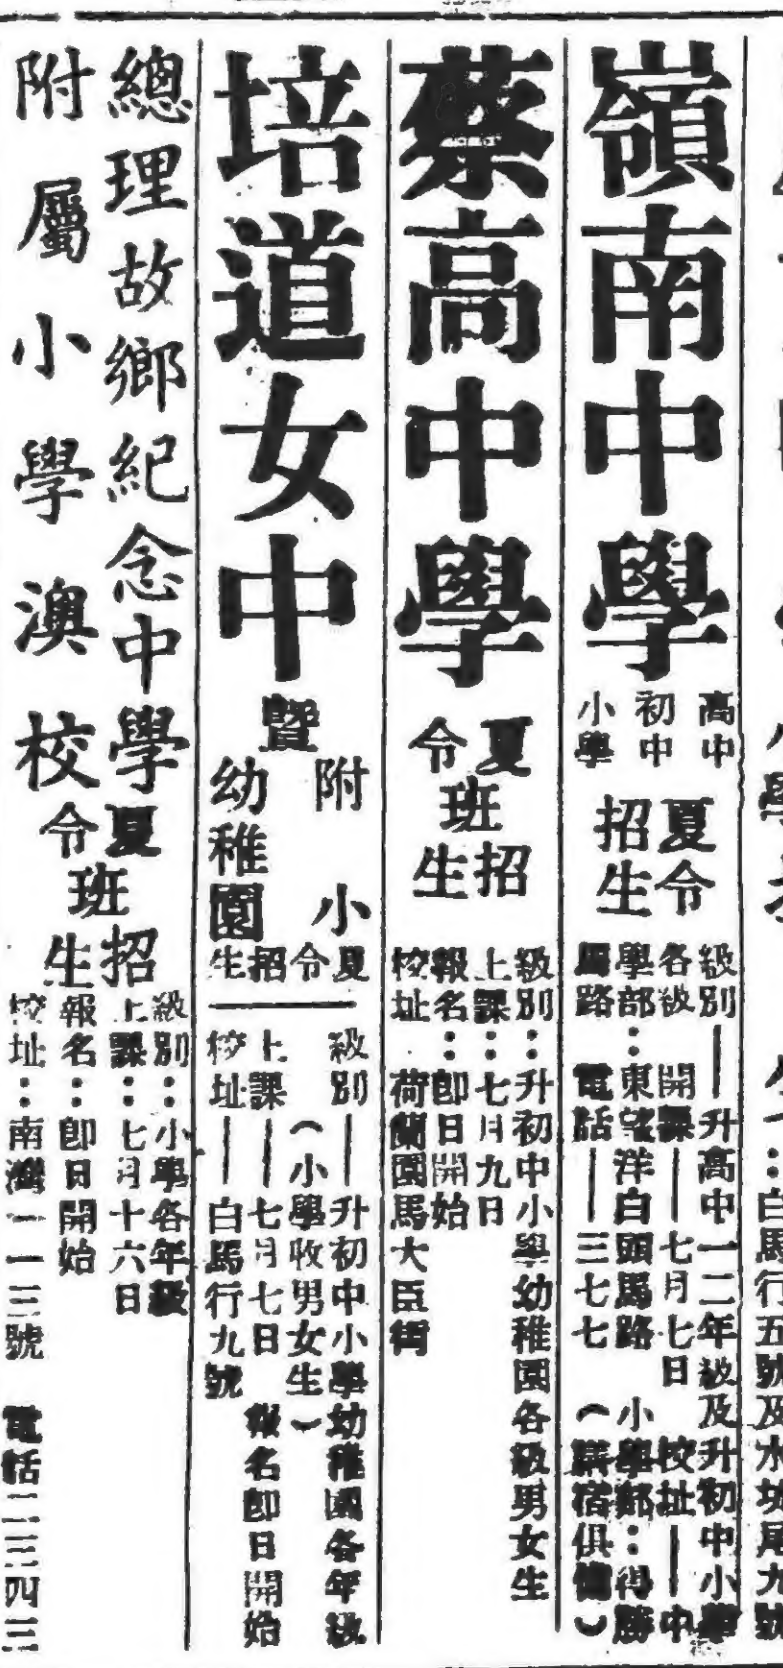 白馬行五號及水坑尾九號
嶺南中學
高中
初中
小學
夏令
招生
級別——升高中一二年級及升初中小學
各級 開課——七月七日 校址——中
學部：東望洋白頭馬路 小學部：得勝
馬路 電話——三七七 (膳宿俱備)
蔡高中學
夏令
班
招生
級別：升初中小學幼稚園各級男女生
上課：七月九日
報名：即日開始
校址 荷蘭園馬大臣街
培道女中
暨
附小
幼稚園
夏令招生
級別——升初中小學幼稚園各年級
(小學收男女生)
上課——七月七日 報名即日開始
校址——白馬行九號
總理故鄉紀念中學
附屬小學澳校
夏令
班
招生
級別：小學各年級
上課：七月十六日
報名：即日開始
校址：南灣一一三號 電話二三四三